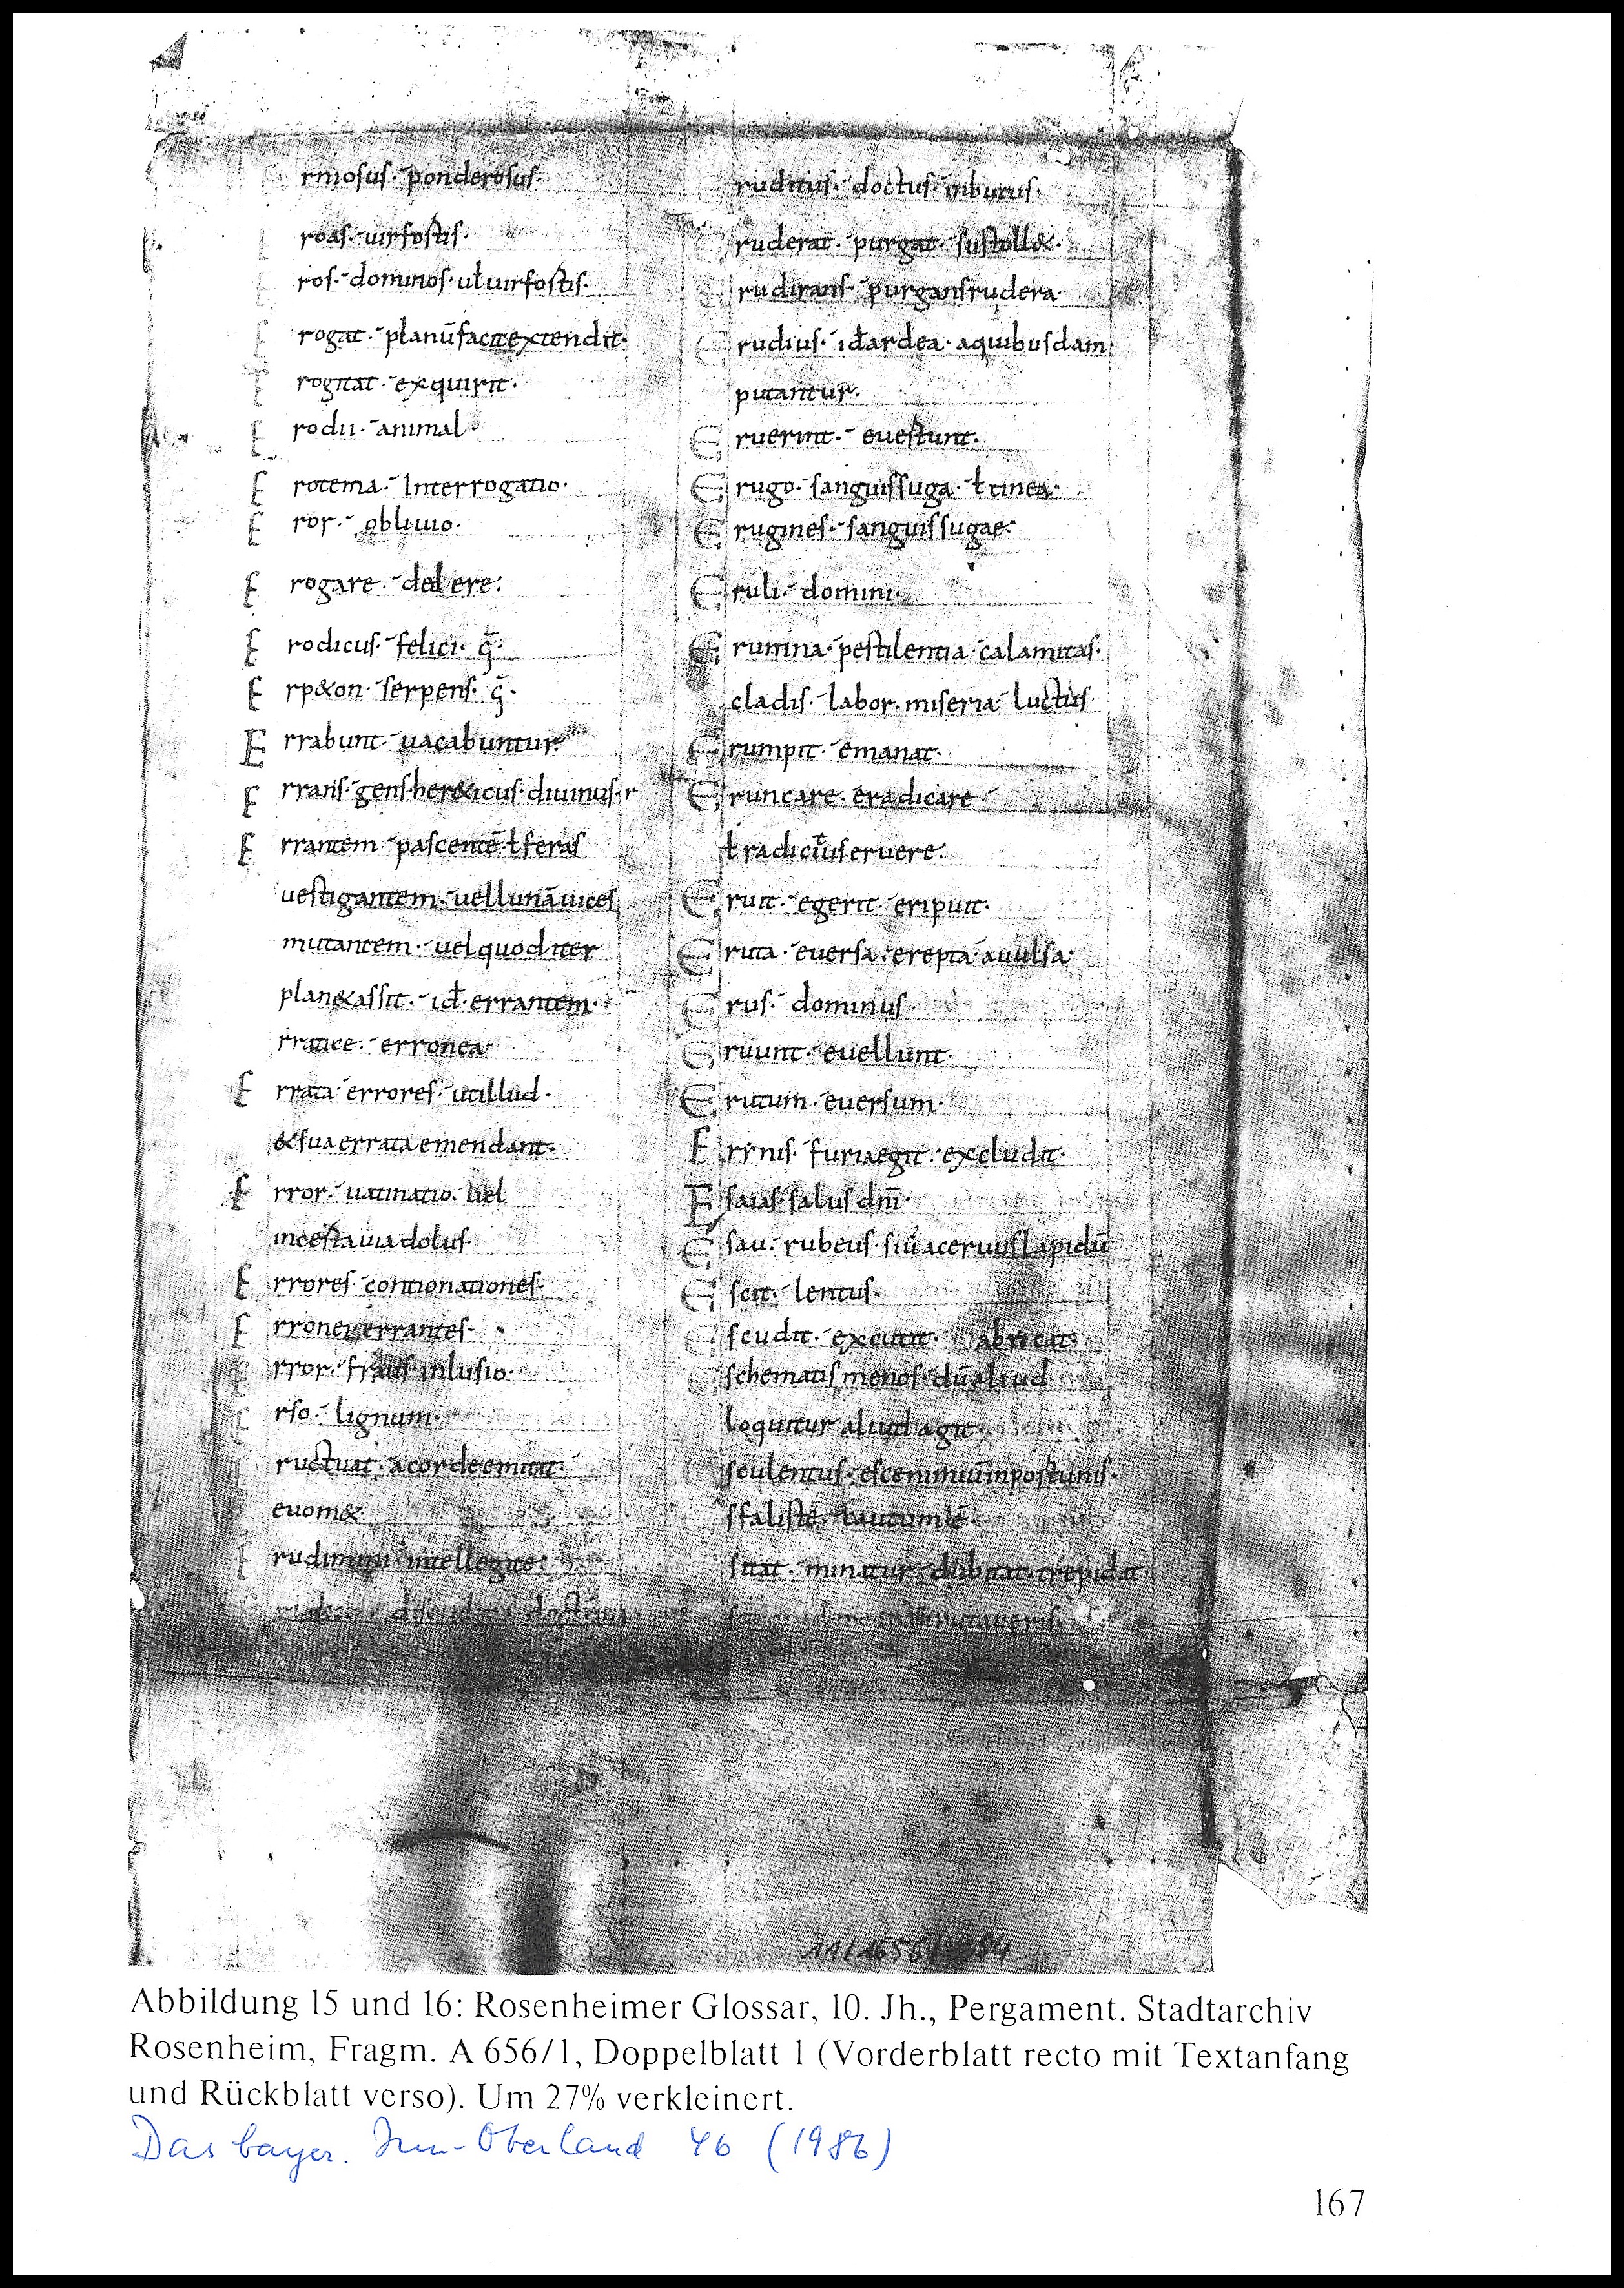 rniosus· ponderosus·
roas· uirfostis·
ros· dominos· ułuirfostis·
E rogat· planūfacitextendit·
E rogitat· exquirit·
E rodii· animal·
E rotema· Interrogatio·
E ror· obliuio·
E rogare· delere·
E rodicus· felici· ḡ·
E rp&on· serpens· ḡ·
E rrabunt· uacabuntur·
E rrans· gens·her&icus· diuinus·r
E rrantem· pascentē·łferas
uestigantem· uellunāuices
mutantem· uelquoditer
plan&assit· · id̵·errantem·
rratice· erronea·
E rrata· errores· utillud·
&suaerrataemendant·
E rror· uatinatio· uel
incestauiadolus·
E rrores· contionationes·
E rronei errantes·
E rror· fraus·inlusio·
E rso· lignum·
E ructuat· acordeemittit·
euom&
E rudimini·intellegite·
doctrina
ruditus· doctus· inbutus·
ruderat· purgat· sustoll&·
rudirans· purgansrudera·
E rudius· id̵ardea· aquibusdam·
putantur·
E ruerint· euestunt·
E rugo· sanguissuga· łtinea·
E rugines· sanguissugae·
E ruli· domini·
E rumna· pestilentia· calamitas·
cladis· labor· miseria· luctus
E rumpit· emanat·
E runcare· eradicare·
łradicit̄useruere·
E ruit· egerit· eripuit·
E ruta· euersa· erepta· auulsa·
E rus· dominus·
E ruunt· euellunt·
E rutum· euersum·
E rynis· furiaegit· excludit·
E saias· salus dnī·
E sau· rubeus· siūaceruuslapidū
E scit· lentus·
E scudit· excutit· abricat·
schematismenos· dūaliud
loquitur aliud agit·
sculentus· escenimiūinpostunis·
sfaliste· tautumiē·
sitat· minatur· dubitat· trepidat·
11/1656/1684
Abbildung 15 und 16: Rosenheimer Glossar, 10. Jh., Pergament. Stadtarchiv
Rosenheim, Fragm. A 656/1, Doppelblatt 1 (Vorderblatt recto mit Textanfang
und Rückblatt verso). Um 27% verkleinert.
Das bayer. Inn-Oberland 46 (1986)
167